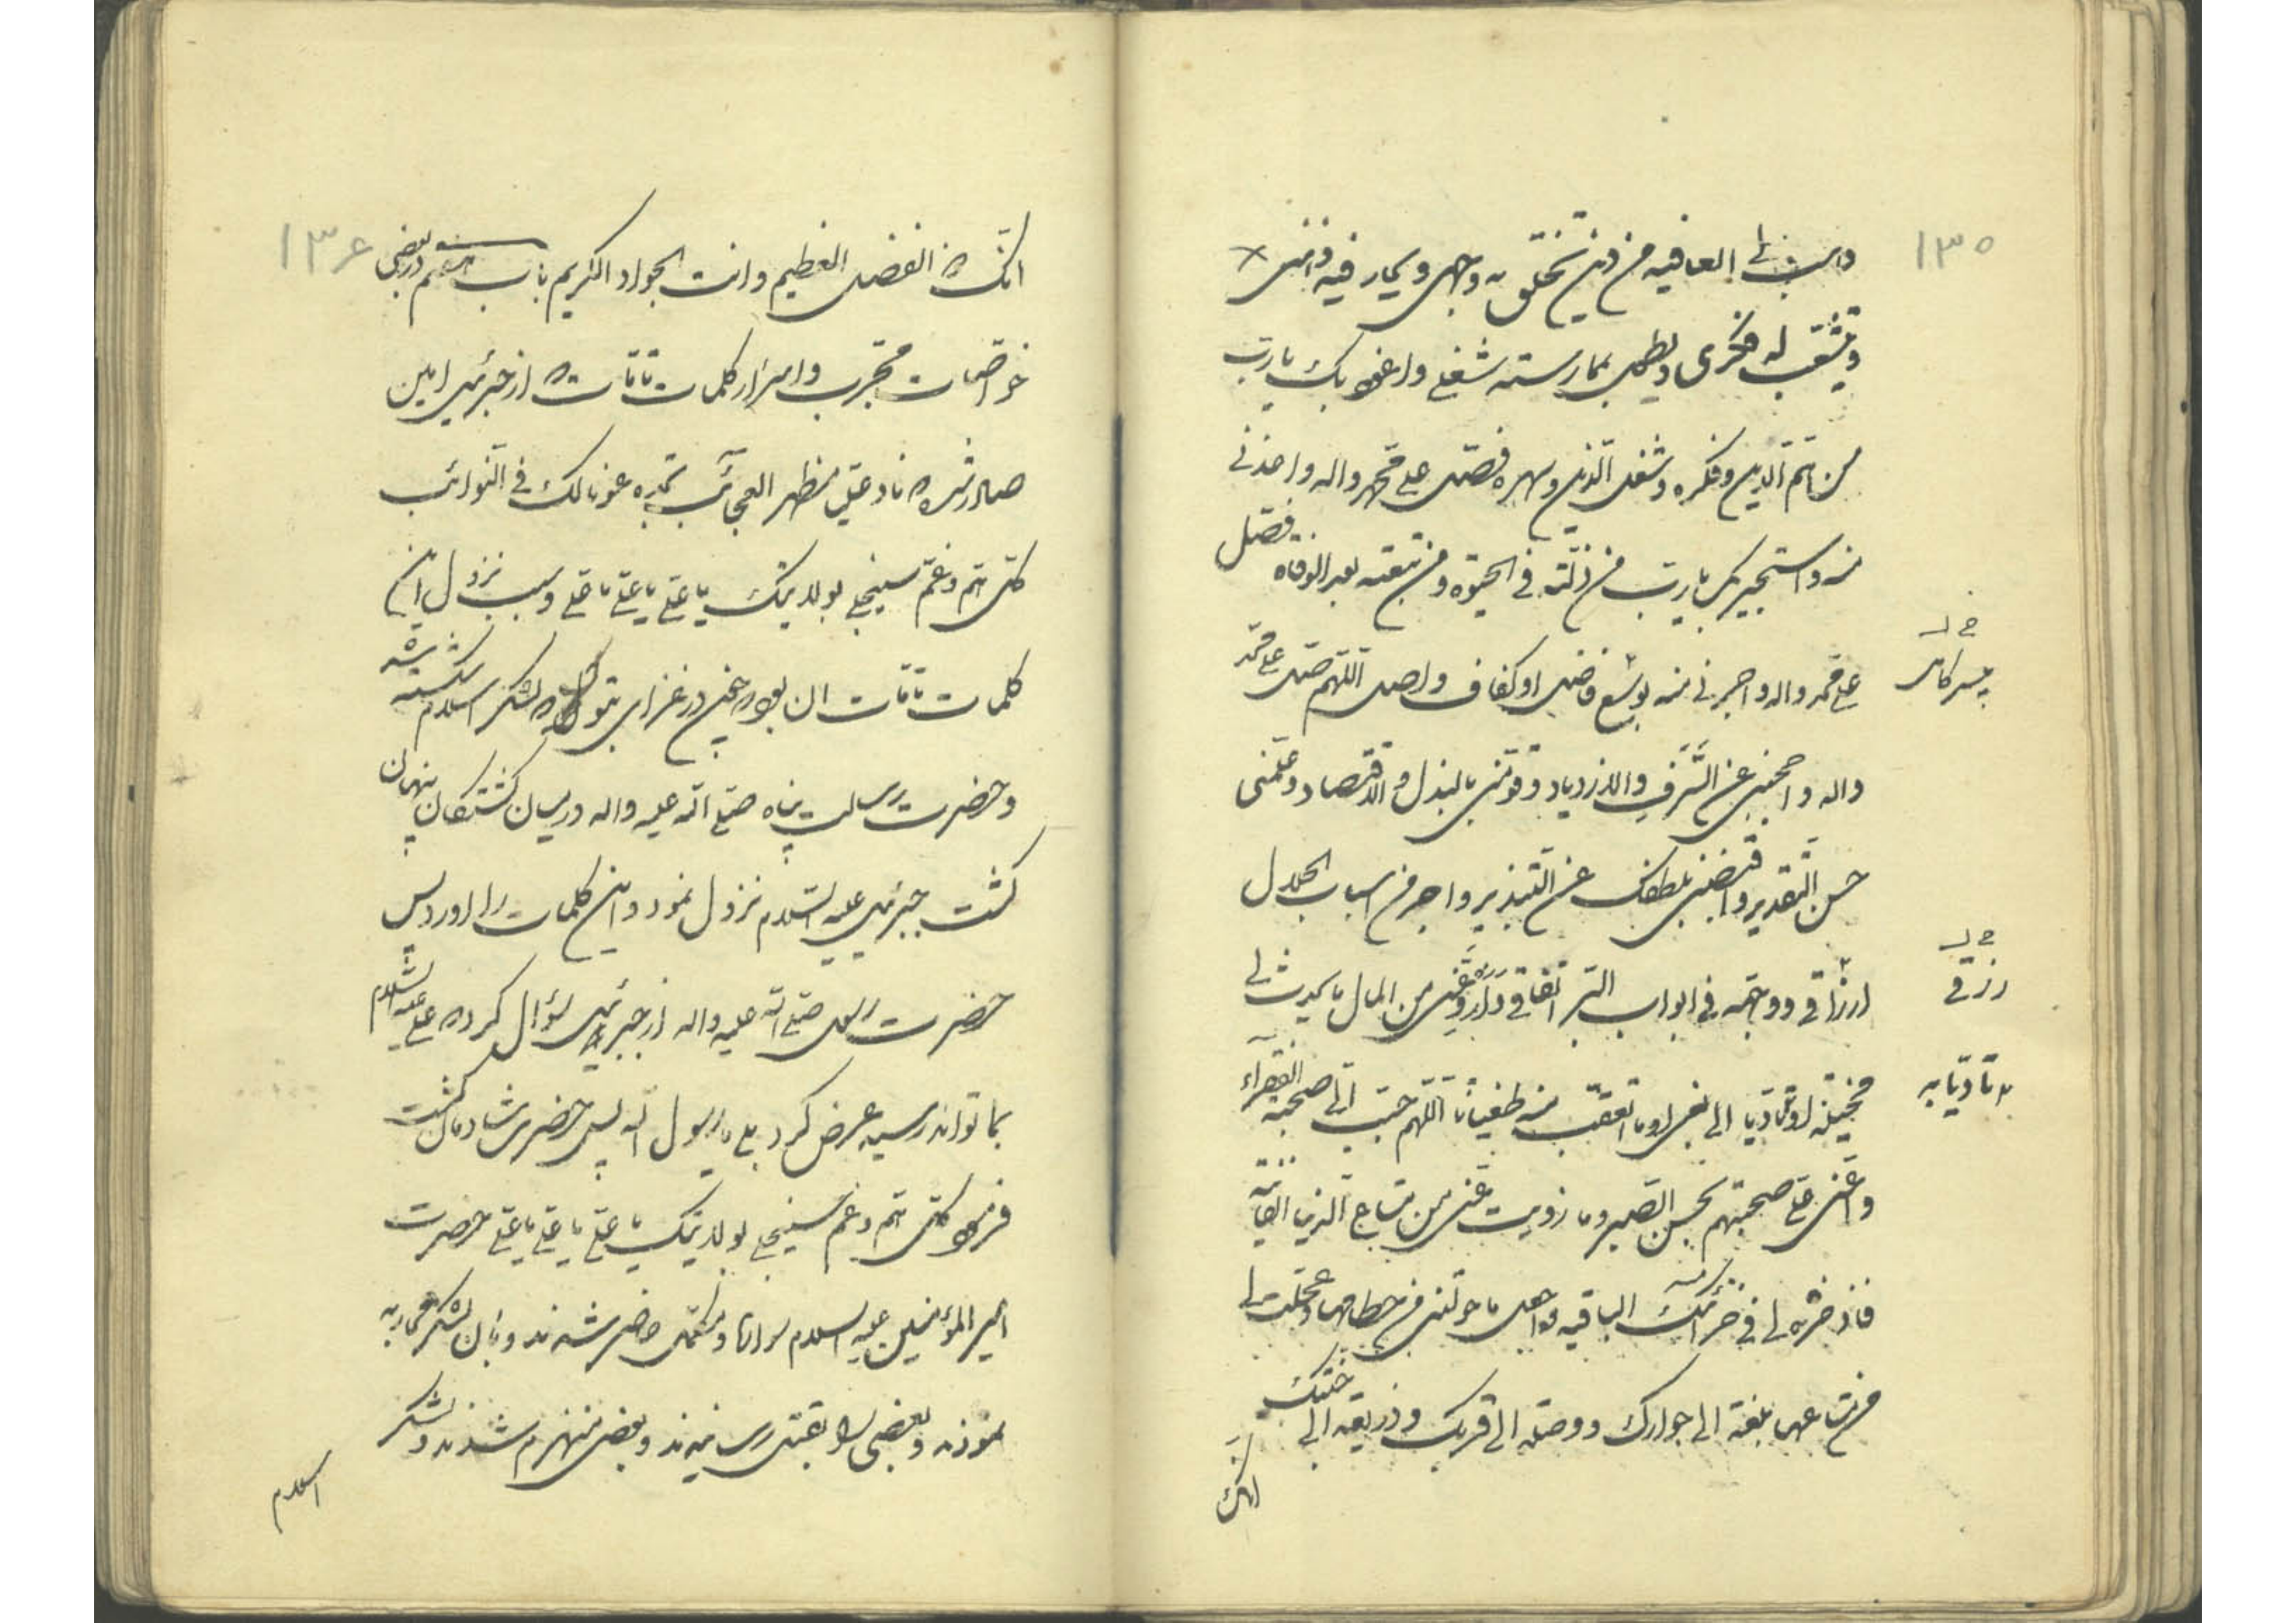 ۱۳۵
وهب لی العافیه من دین تخلق به وجهی و یحار فیه ذهنی
و یتشعب له فکری و یطول بممارسته شغلی و اعوذ بک یا رب
من هم الدین و فکره و شغل الدین و سهره فصل علی محمد و اله و اعذنی
منه و استجیر بک یا رب من ذلته فی الحیوة و من تبعته بعد الوفاه فصل
علی محمد و اله و اجرنی منه بوسع فاضل او کفاف واصل اللهم صل علی محمد
و اله و احجبنی عن السرف و الازدیاد و قومنی بالبذل و الاقتصاد و علمنی
حسن التقدیر و اقبضنی بلطفک عن التبذیر و اجر من اسباب الحلال
ارزاقی و وجه فی ابواب البر انفاقی و ازو عنی من المال ما یحدث لی
رزقی
مخیلة او تادیا الی بغی او ما اتعقب منه طغیانا اللهم حبب الی صحبة الفقراء
و اعنی علی صحبتهم بحسن الصبر و ما زویت عنی من متاع الدنیا الفانیة
فاذخره لی فی خزائنک الباقیه و اجعل ما خولتنی من حطامها و عجلت لی
من متاعها بلغة الی جوارک و وصلة الی قربک و ذریعة الی جنتک
انک
۱۳۶
انک ذ الفضل العظیم و انت الجواد الکریم باب هفتم در بعضی
خواصات مجرب و اسرار کلمات تامات که از جبرئیل امین
صادر شده ناد علیا مظهر العجائب تجده عونا لک فی النوائب
کل هم و غم سینجلی بولایتک یا علی یا علی یا علی و سبب نزول این
کلمات تامات ان بود که چون در غزای تبوک لشکر اسلام شکسته شد
و حضرت رسالت پناه صلی الله علیه و اله در میان کشتکان پنهان
کشت جبرئیل علیه السلام نزول نمود و این کلمات را اورد پس
حضرت رسول صلی الله علیه و اله از جبرئیل سؤال کرد که علی علیه السلام
بما تواند رسید عرض کرد بلی یا رسول الله پس حضرت شادمان کشت
فرمود کل هم و غم سینجلی بولایتک یا علی یا علی یا علی حضرت
امیر المؤمنین علیه السلام سوار و مکمل حاضر شدند و بان لشکر محاربه
نمودند و بعضی را بقتل رسانیدند و بعضی منهزم شدند و لشکر
اسلام